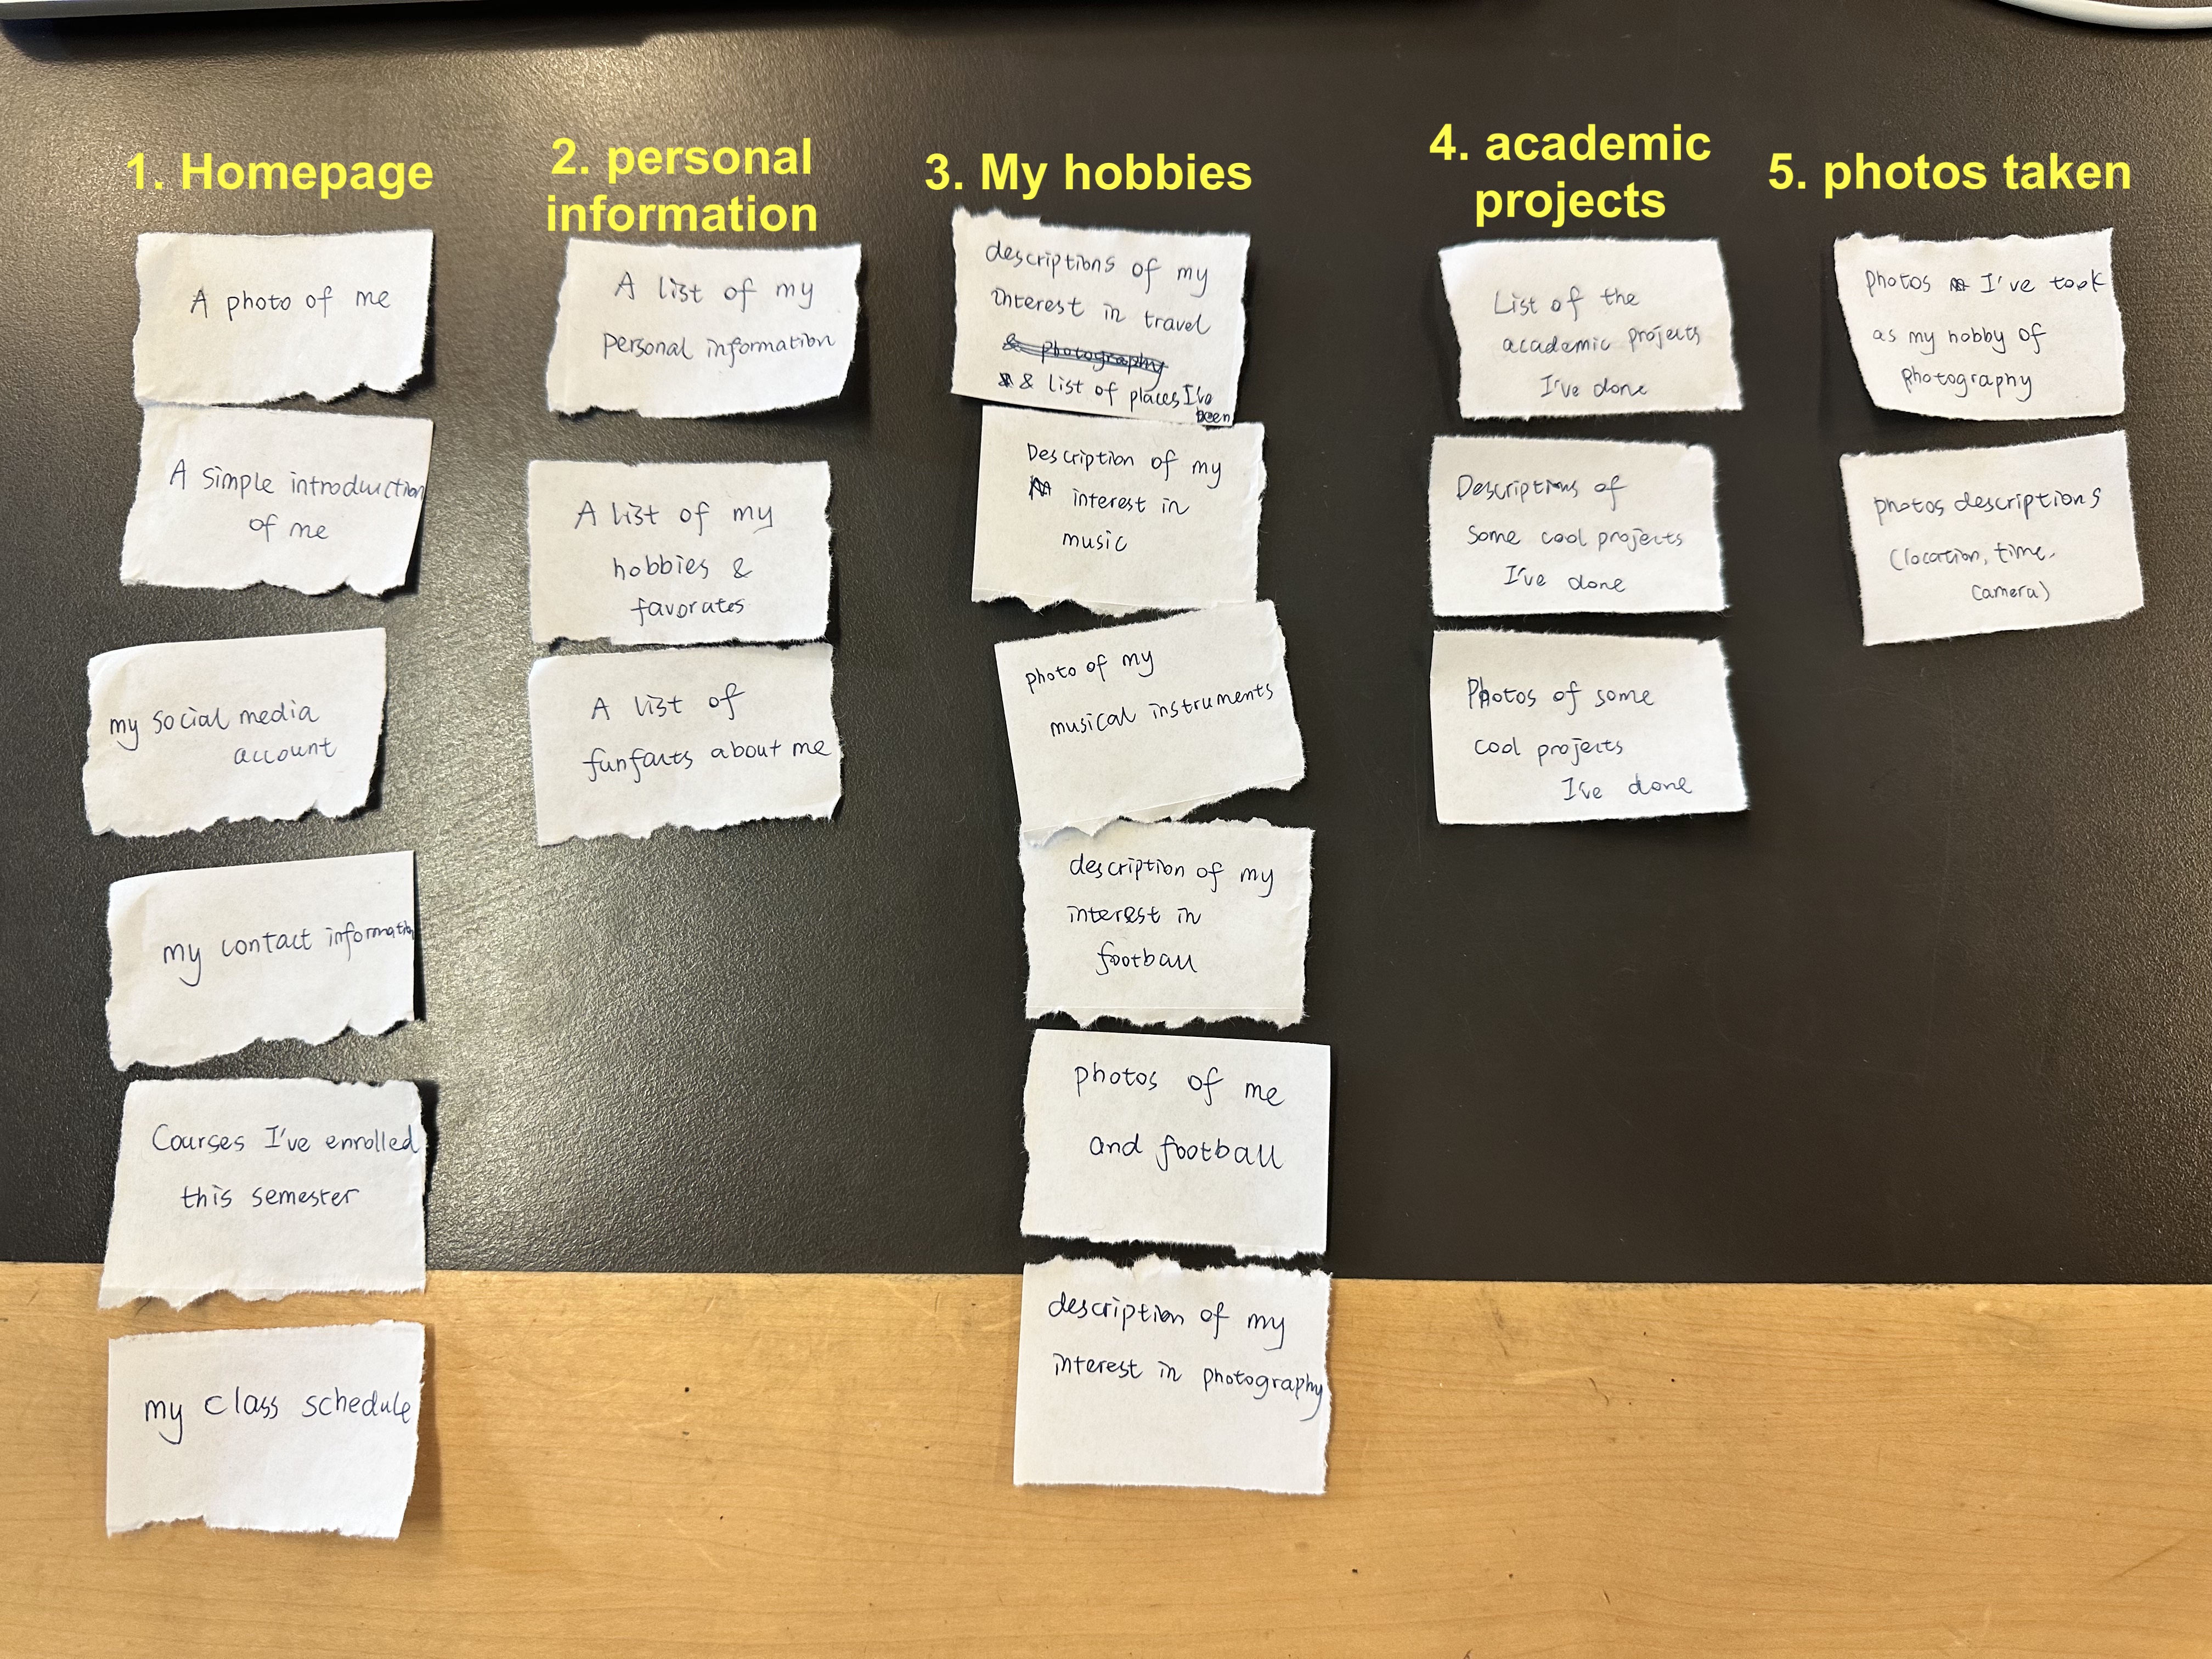 1. Homepage
A photo of me
A simple introduction
of me
my social media
account
my contact information
Courses I've enrolled
this semester
my class schedule
2. personal
information
A list of my
personal information
A list of my
hobbies &
favorates
A list of
funfacts about me
3. My hobbies
descriptions of my
interest in travel
& photography
& list of places I've
been
Description of my
interest in
music
photo of my
musical instruments
description of my
interest in
football
photos of me
and football
description of my
interest in photography
4. academic
projects
List of the
academic projects
I've done
Descriptions of
some cool projects
I've done
Photos of some
cool projects
I've done
5. photos taken
photos I've took
as my hobby of
photography
photos descriptions
(location, time,
camera)